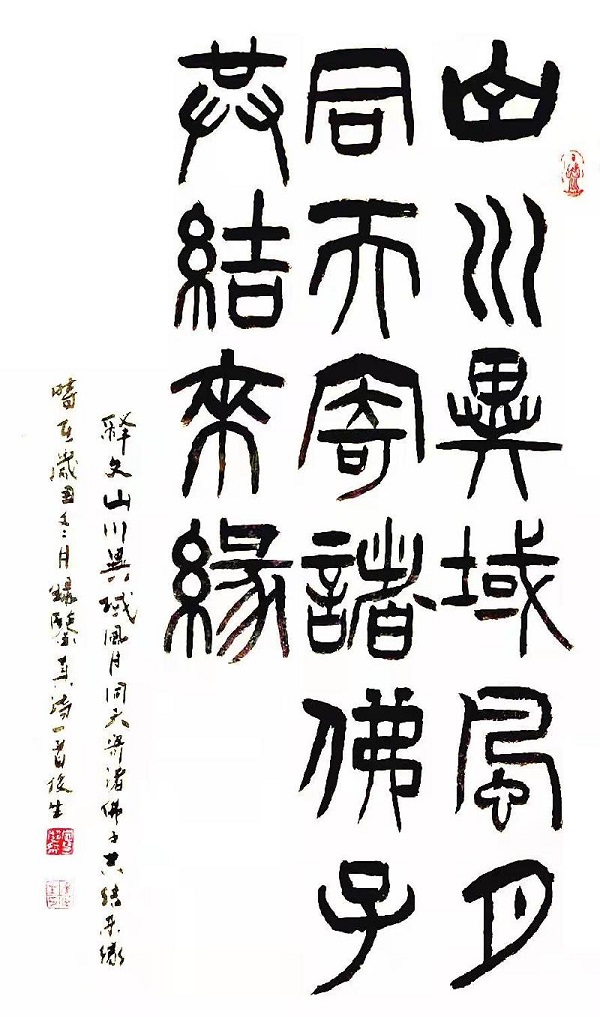 山川異域風月
同天寄諸佛子
共結來緣
释文山川異域風月同天寄諸佛子共結来缘
時在歲丑月録鑒真詩一首後生